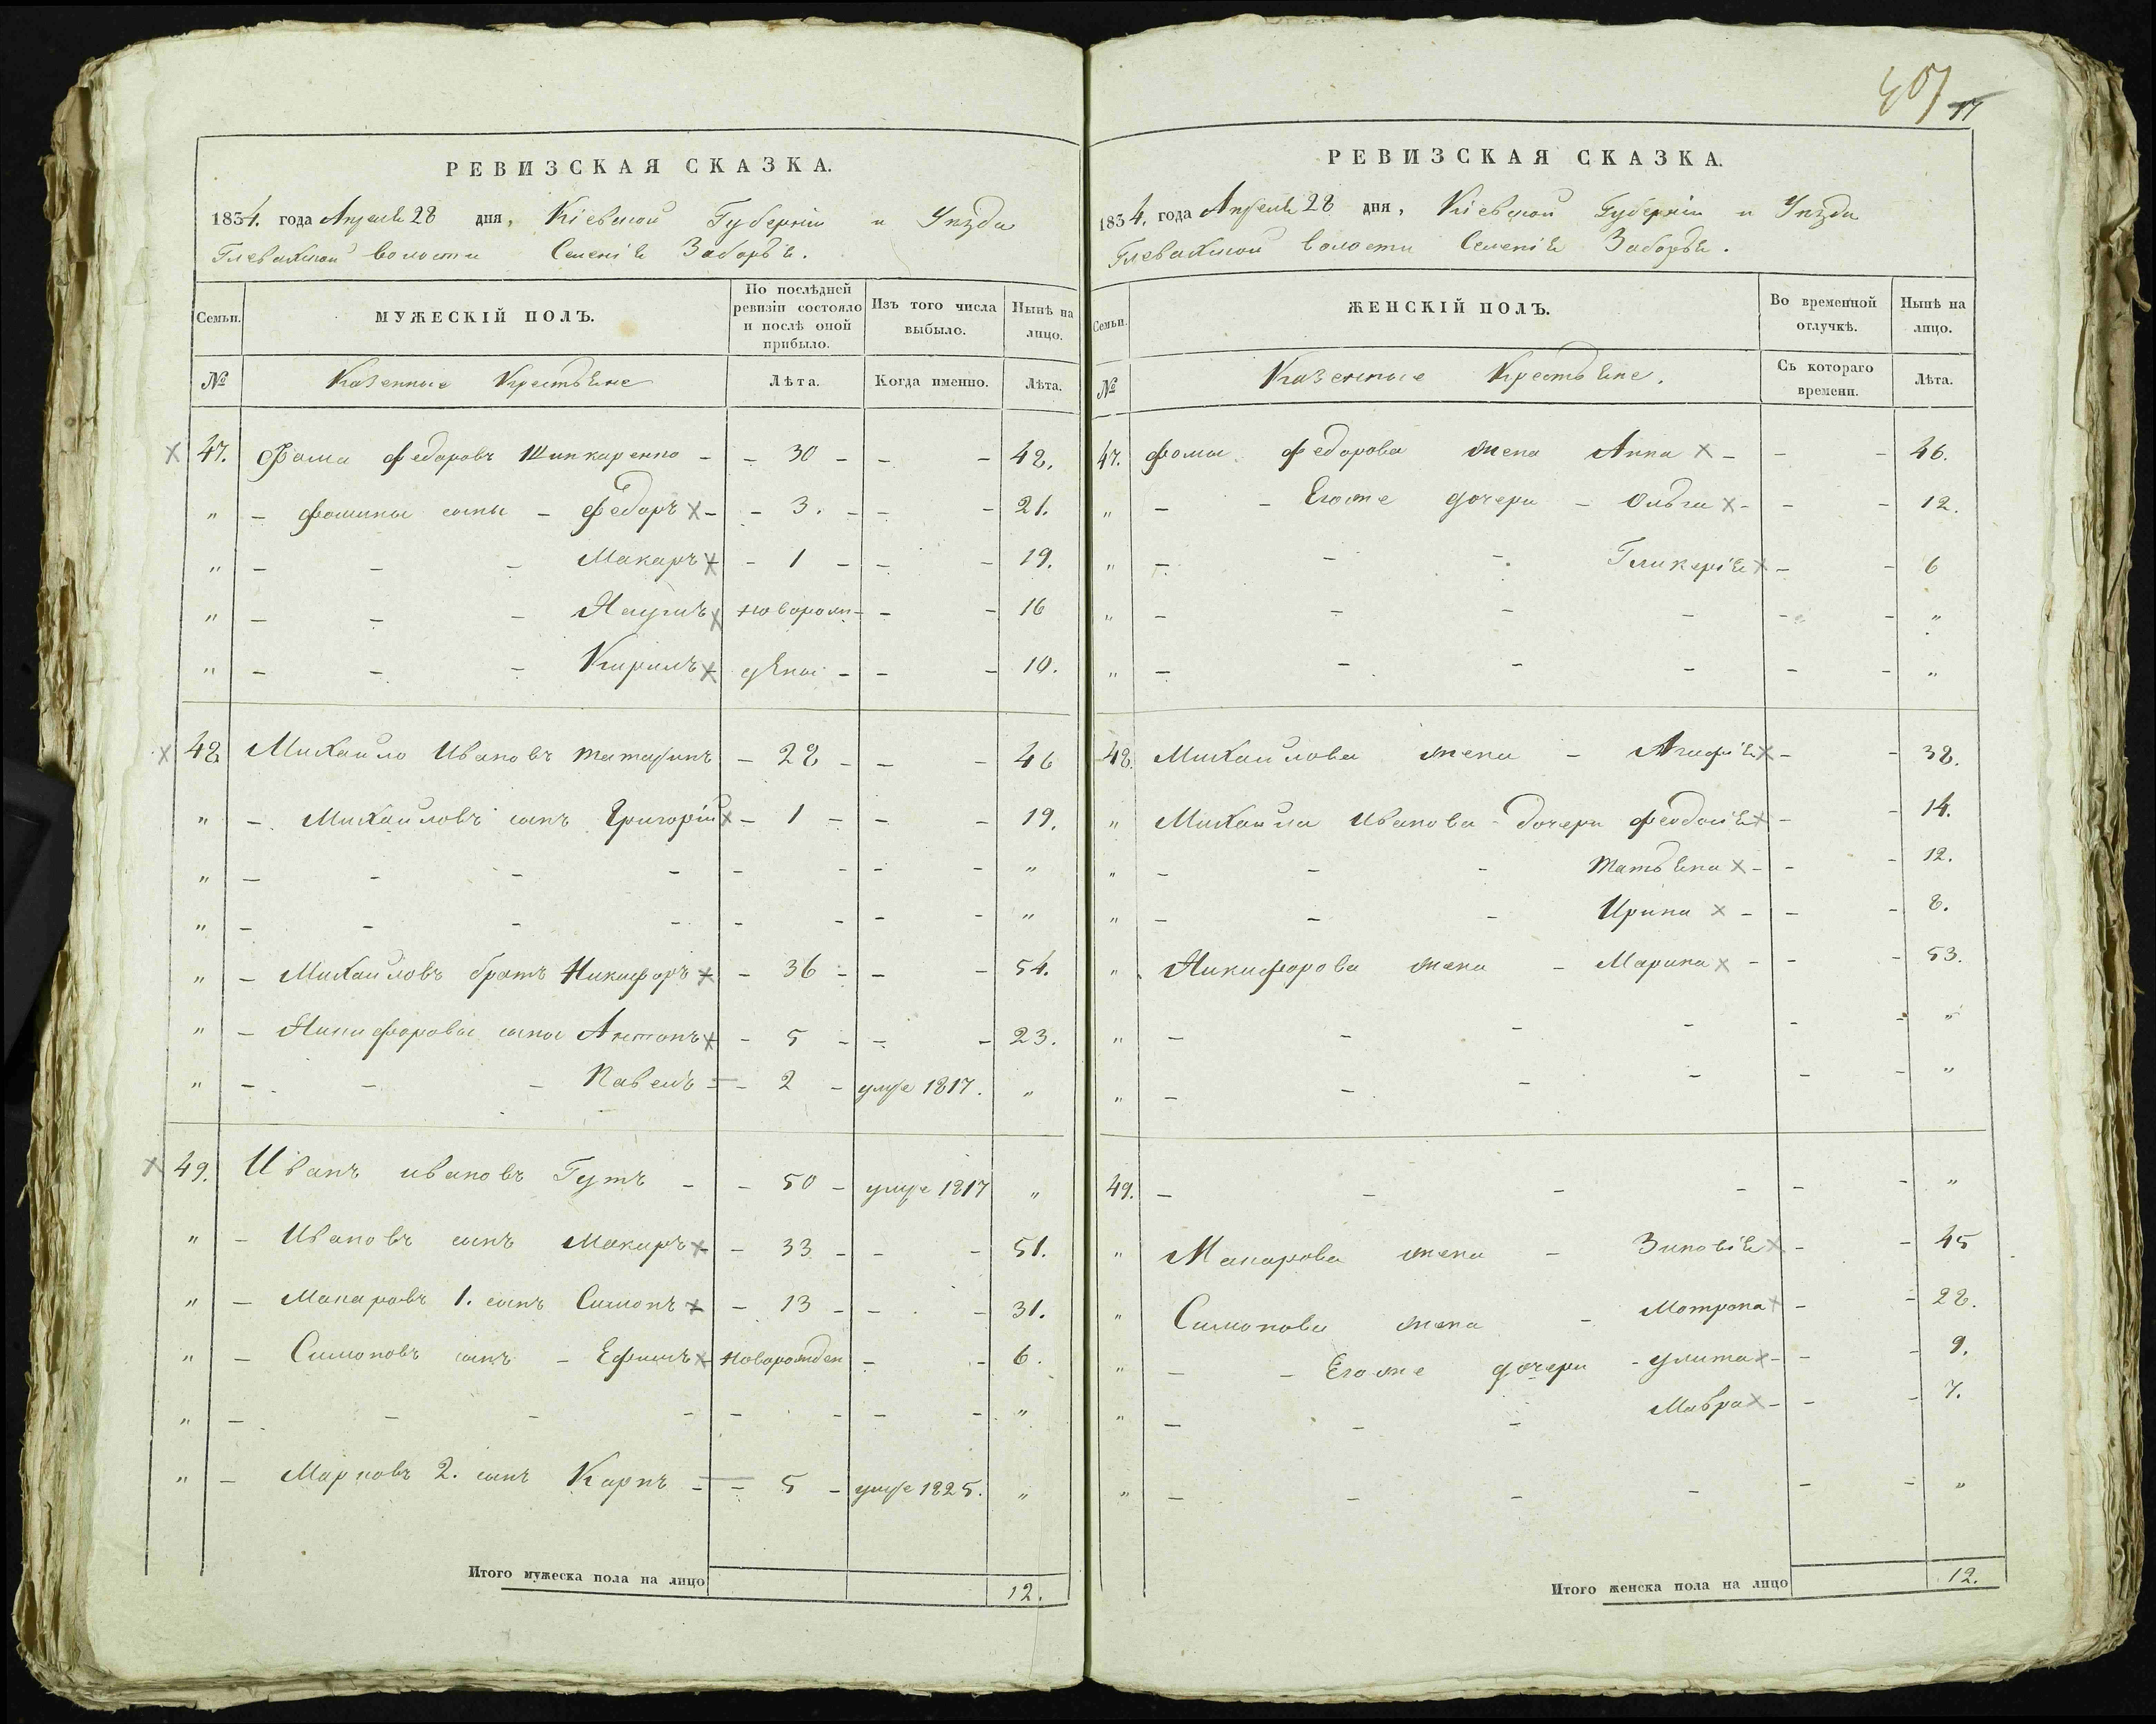 РЕВИЗСКАЯ СКАЗКА.
1834. года Апреля 28 дня, Кіевской Губерніи и Уѣзда
Глевахской волости Селенія Заборья.
Семьи. МУЖЕСКІЙ ПОЛЪ. По послѣдней ревизіи состояло и послѣ оной прибыло. Изъ того числа выбыло. Нынѣ на лицо.
№ Казенные Крестьяне Лѣта. Когда именно. Лѣта.
47. Фома Федоровъ Шинкаренко - - 30 - - - 48.
" - Фомины сыны - Федоръ - - 3. - - - 21.
" - - - Макаръ - - 1 - - - 19.
" - - - Наумъ новорож- - - 16
" - - - Кирилъ - дѣны - - - 10.
48. Михайло Ивановъ Татаринъ - 28 - - - 46
" - Михайловъ сынъ Григорій - 1 - - - 19.
" - - - - - - - - "
" - - - - - - - - "
" - Михайловъ братъ Никифоръ - 36 - - - 54.
" - Никифоровы сыны Антонъ - 5 - - - 23.
" - - - Павелъ - - 2 - умре 1817. "
49. Иванъ Ивановъ Гутъ - - 50 - умре 1817 "
" - Ивановъ сынъ Макаръ - - 33 - - - 51.
" - Макаровъ 1. сынъ Симонъ - - 13 - - - 31.
" - Симоновъ сынъ - Ефимъ - новорожден - - 6.
" - - - - - - - - "
" - Марковъ 2. сынъ Карпъ - - 5 - умре 1825. "
Итого мужеска пола на лицо 12.
407 17
РЕВИЗСКАЯ СКАЗКА.
1834. года Апреля 28 дня, Кіевской Губерніи и Уѣзда
Глевахской волости Селенія Заборья.
Семьи. ЖЕНСКІЙ ПОЛЪ. Во временной отлучкѣ. Нынѣ на лицо.
№ Казенные Крестьяне. Съ котораго времени. Лѣта.
47. Фомы Федорова жена Анна - - - 46.
" - - Егоже дочери - Ольга - - - 12.
" - - - Гликерія - - 6
" - - - - - - "
" - - - - - - "
48. Михайлова жена - Агафія - - 38.
" Михайла Иванова - дочери Феодосія - - 14.
" - - - Татьяна - - - 12.
" - - - Ирина - - - 8.
" Никифорова жена - Марина - - - 53.
" - - - - - - "
" - - - - - - "
49. - - - - - - "
" Макарова жена - Зиновія - - 45
" Симонова жена - Мотрона - - 28.
" - - Егоже дочери - Улита - - - 9.
" - - - Мавра - - - 7.
" - - - - - - "
Итого женска пола на лицо 12.